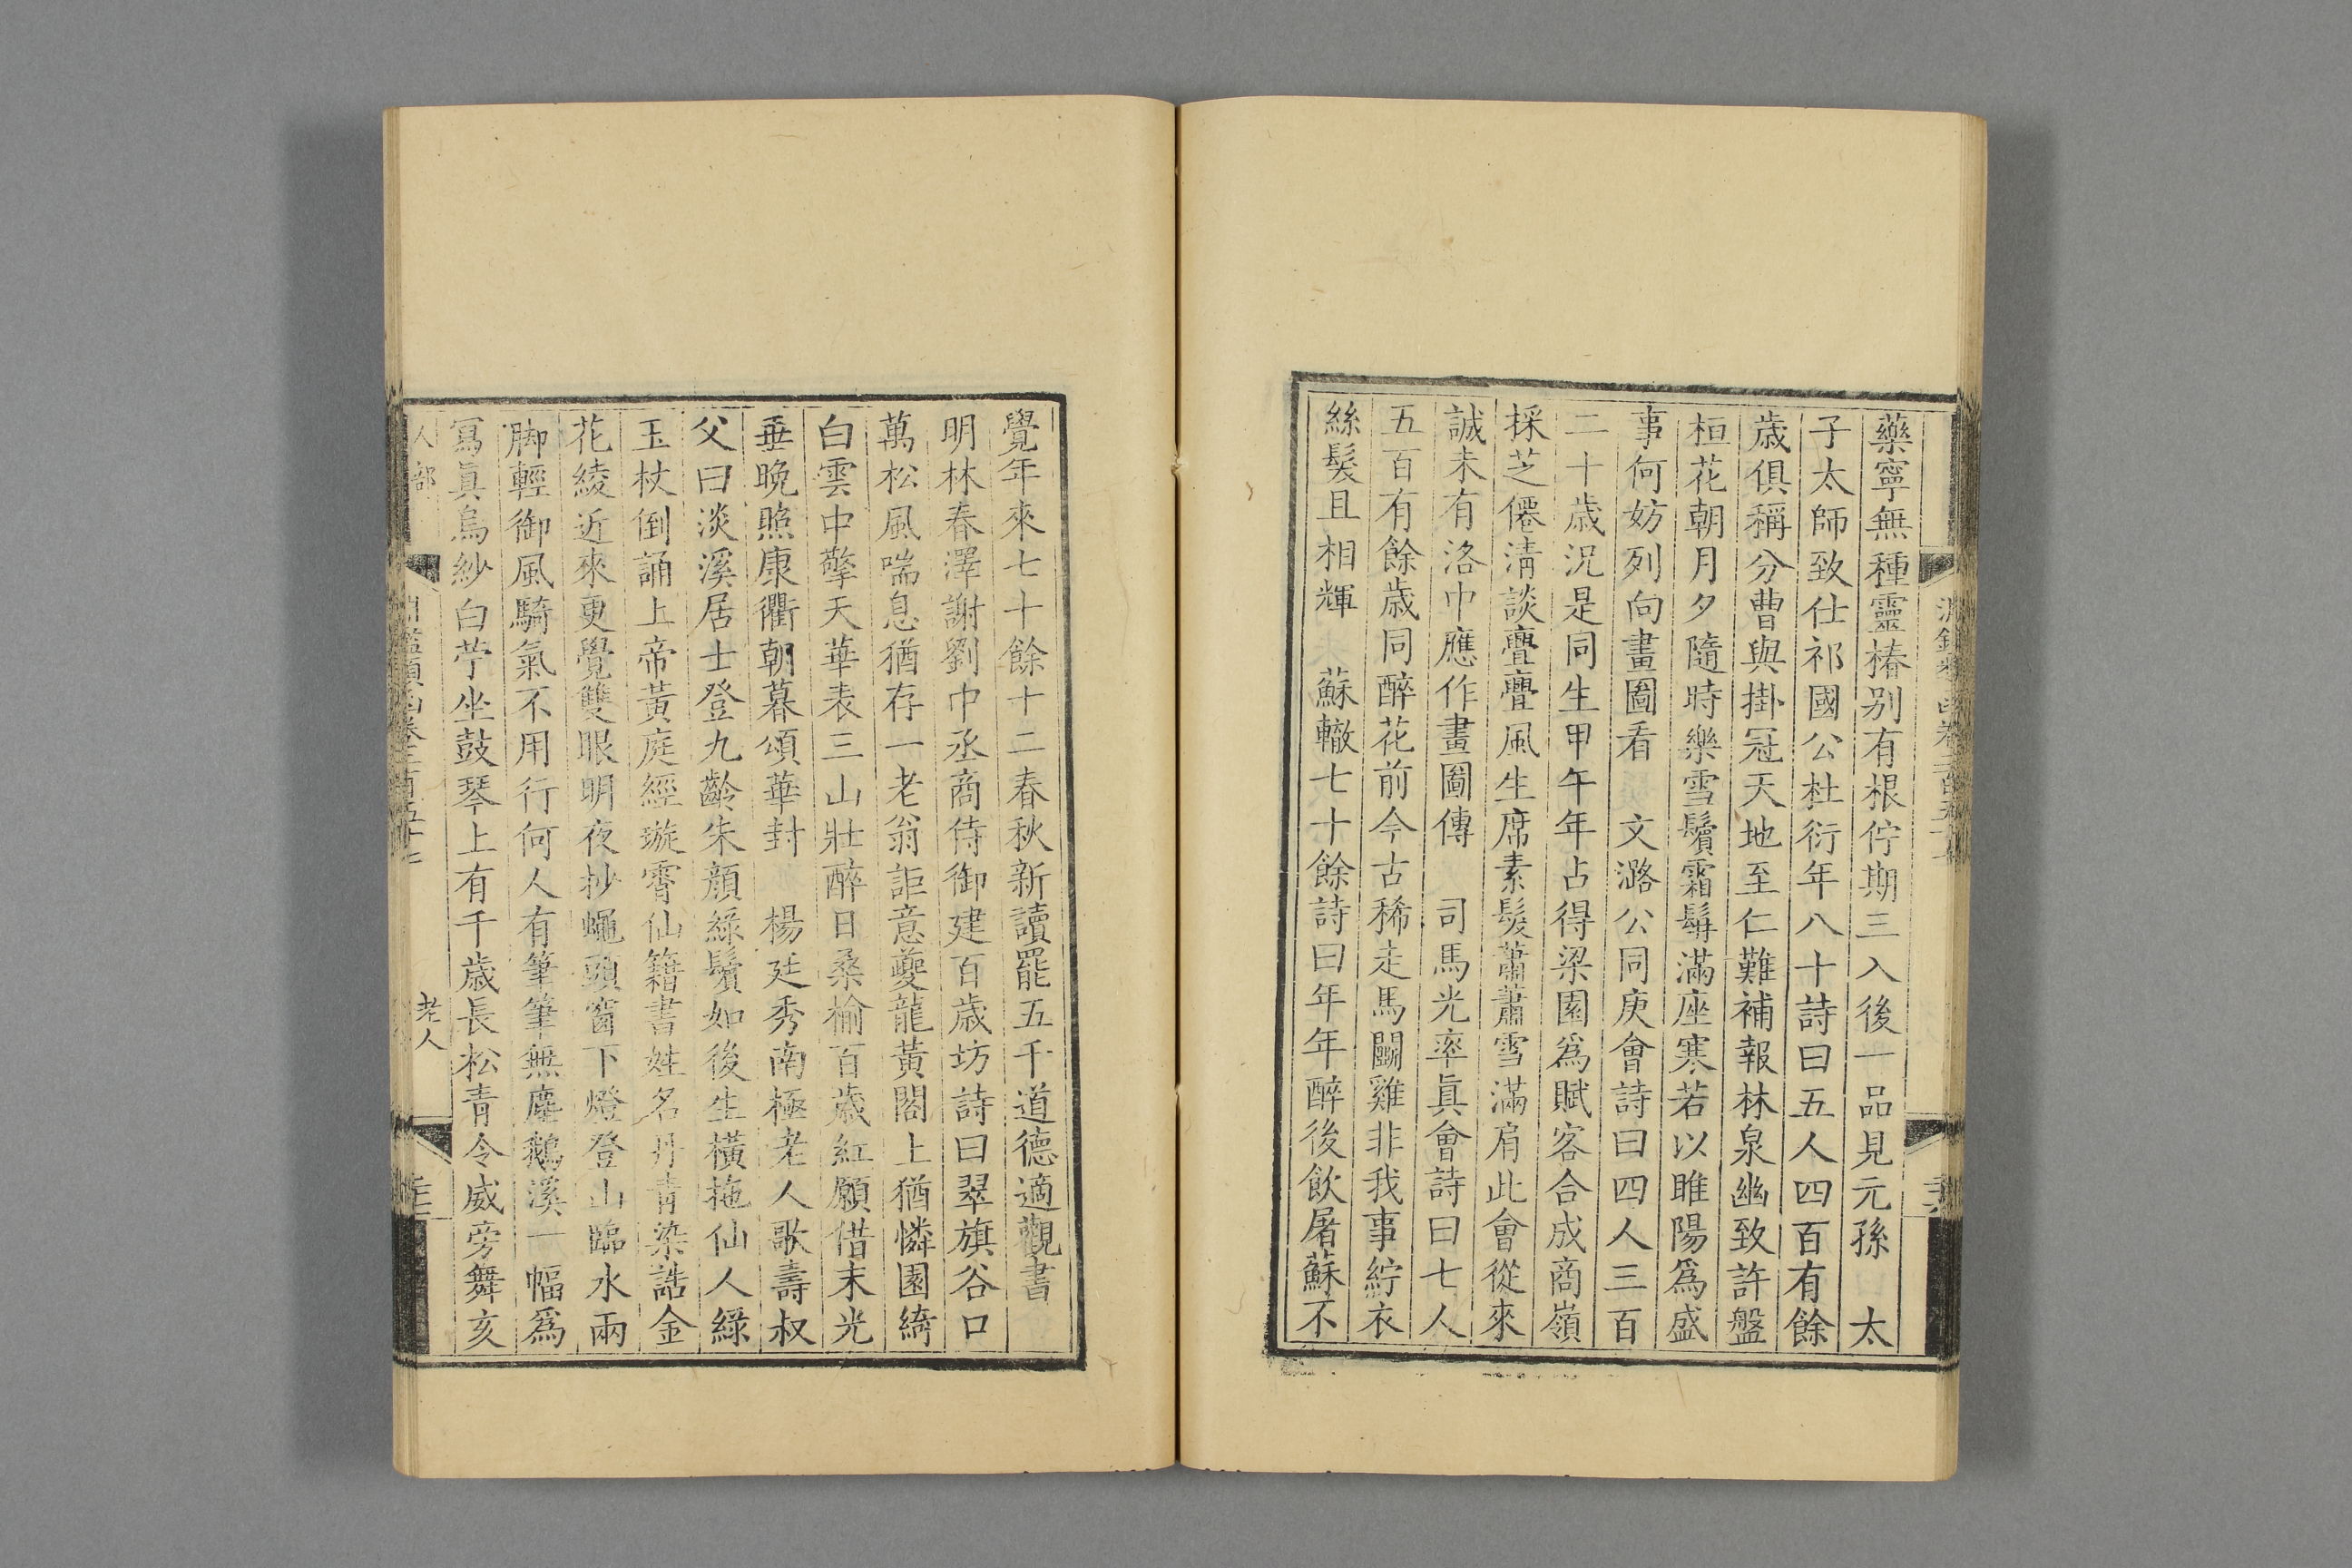 藥寧無種靈椿别有根佇期三入後一品見元孫　太
子太師致仕祁國公杜衍年八十詩曰五人四百有餘
歲俱稱分曹與掛冠天地至仁難補報林泉幽致許盤
桓花朝月夕隨時樂雪鬢霜髯滿座寒若以睢陽爲盛
事何妨列向畫圖看　文潞公同庚會詩曰四人三百
二十歲況是同生甲午年占得梁園爲賦客合成商嶺
採芝僊淸談亹亹風生席素髮蕭蕭雪滿肩此會從來
誠未有洛中應作畫圖傳　司馬光率眞會詩曰七人
五百有餘歲同醉花前今古稀走馬鬭雞非我事紵衣
絲髮且相輝　蘇轍七十餘詩曰年年醉後飲屠蘇不
覺年來七十餘十二春秋新讀罷五千道德適觀書
明林春澤謝劉中丞商侍御建百歲坊詩曰翠旗谷口
萬松風喘息猶存一老翁詎意夔龍黃閣上猶憐園綺
白雲中擎天華表三山壯醉日桑榆百歲紅願借末光
垂晩照康衢朝暮頌華封　楊廷秀南極老人歌壽叔
父曰淡溪居士登九齡朱顔綠鬢如後生橫拖仙人綠
玉杖倒誦上帝黃庭經璇霄仙籍書姓名丹靑染誥金
花綾近來更覺雙眼明夜抄蠅頭窗下燈登山臨水兩
脚輕御風騎氣不用行何人有筆筆無塵鵝溪一幅爲
寫眞烏紗白苧坐鼓琴上有千歲長松靑令威旁舞亥
人部
淵鑑類函卷二百五十七
老人